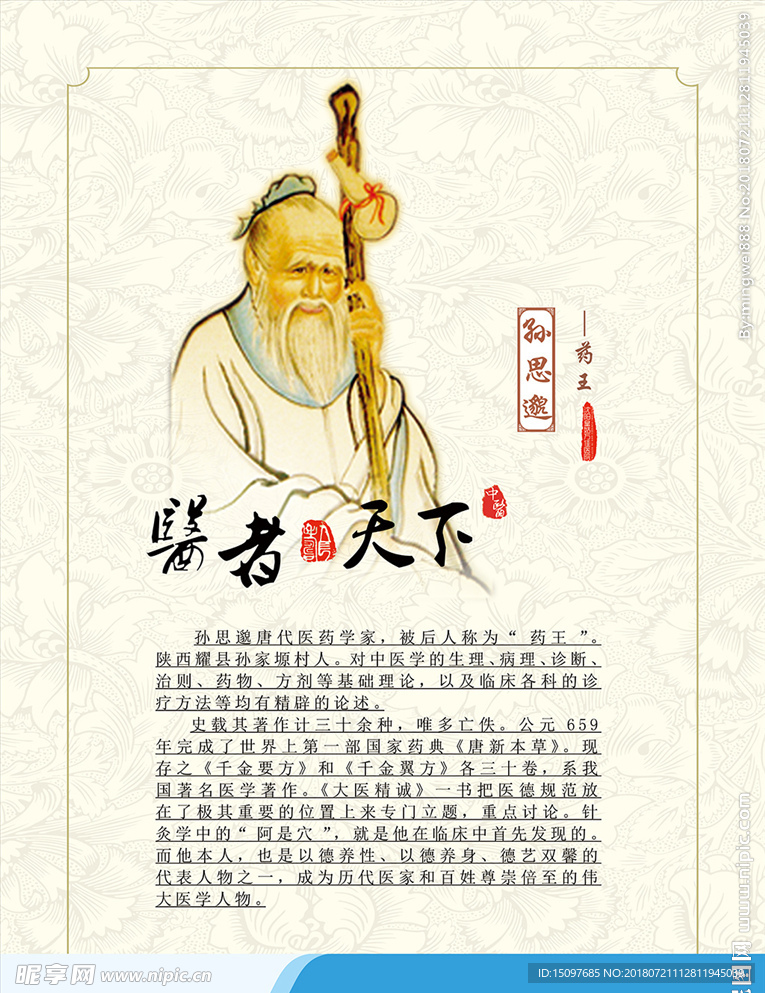 孙思邈
——药王
醫者天下
中醫
孙思邈唐代医药学家，被后人称为“药王”。
陕西耀县孙家塬村人。对中医学的生理、病理、诊断、
治则、药物、方剂等基础理论，以及临床各科的诊
疗方法等均有精辟的论述。
史载其著作计三十余种，唯多亡佚。公元 659
年完成了世界上第一部国家药典《唐新本草》。现
存之《千金要方》和《千金翼方》各三十卷，系我
国著名医学著作。《大医精诚》一书把医德规范放
在了极其重要的位置上来专门立题，重点讨论。针
灸学中的“阿是穴”，就是他在临床中首先发现的。
而他本人，也是以德养性、以德养身、德艺双馨的
代表人物之一，成为历代医家和百姓尊崇倍至的伟
大医学人物。
昵享网 www.nipic.cn
ID:15097685 NO:20180721112811945039
By:mingwei888 No:20180721112811945039
昵图网 www.nipic.com